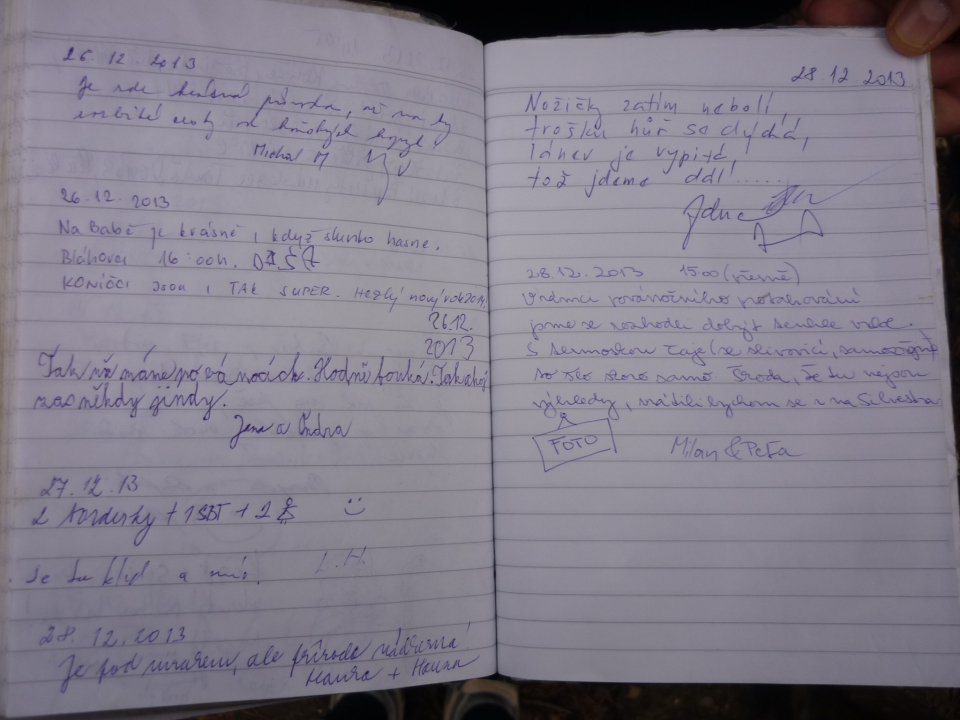 26. 12. 2013
Je zde krásná příroda, až na ty
rozbité cesty od koňských kopyt
Michal M
26.12.2013
Na Babě je krásně i když slunko hasne.
Bláhovci 16:00h.
KONÍČCI JSOU I TAK SUPER. HEZKÝ nový rok 2014,
26.12.
2013
Tak už máme po Vánocích. Hodně fouká. Tak ahoj
zas někdy jindy.
Jana a Ondra
27.12.13
2 + 1 + 2
Je tu klid a mís.
L.H.
28.12.2013
Je pod mrakem, ale příroda nádherná!
Hanka + Hanka
28.12.2013
Nožičky zatím nebolí,
trošku hůř se dýchá,
láhev je vypitá,
tož jdeme dál.....
28.12.2013 1500 (přesně)
V rámci povánočního
jsme se rozhodli dobýt
S termoskou čaje (se slivovicí, samozřejmě)
to šlo skoro samo. Škoda, že tu nejsou
výhledy, vrátili bychom se i na Silvestra
FOTO
Milan & Peťa